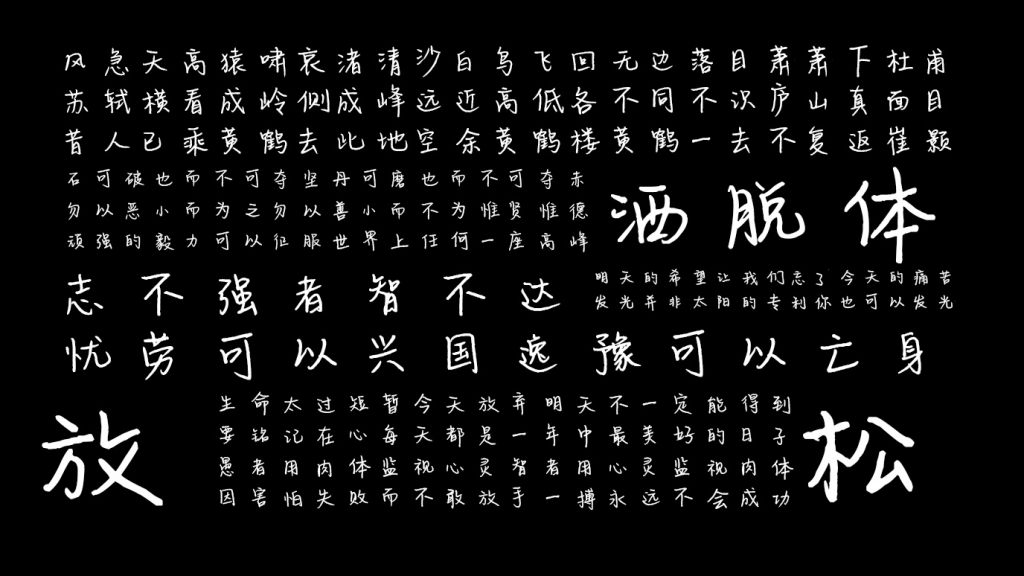 风急天高猿啸哀渚清沙白鸟飞回无边落目萧萧下杜甫
苏轼横看成岭侧成峰远近高低各不同不识庐山真面目
昔人已乘黄鹤去此地空余黄鹤楼黄鹤一去不复返崔颢
石可破也而不可夺坚丹可磨也而不可夺赤
勿以恶小而为之勿以善小而不为惟贤惟德
顽强的毅力可以征服世界上任何一座高峰
洒脱体
志不强者智不达
明天的希望让我们忘了今天的痛苦
发光并非太阳的专利你也可以发光
忧劳可以兴国逸豫可以亡身
放松
生命太过短暂今天放弃明天不一定能得到
要铭记在心每天都是一年中最美好的日子
愚者用肉体监视心灵智者用心灵监视肉体
因害怕失败而不敢放手一搏永远不会成功